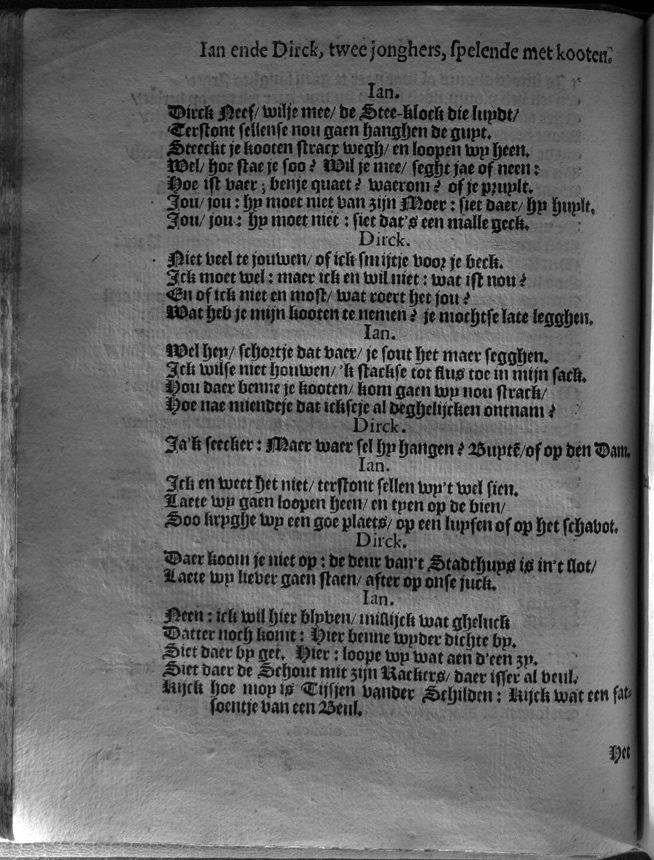 Ian ende Dirck, twee jonghers, spelende met kooten.
Ian.
Dirck Neef/ wilje mee/ de Stee-klock die luydt/
Terstont sellense nou gaen hanghen de guyt.
Steeckt je kooten stracx wegh/ en loopen wy heen.
Wel/ hoe stae je soo? Wil je mee/ seght jae of neen:
Hoe ist vaer; benje quaet? waerom? of je pruylt.
Jou/ jou: hy moet niet van zijn Moer: siet daer/ hy huylt.
Jou/ jou: hy moet niet: siet dat's een malle geck.
Dirck.
Niet veel te jouwen/ of ick smijtje voor je beck.
Ick moet wel: maer ick en wil niet: wat ist nou?
En of ick niet en most/ wat roert het jou?
Wat heb je mijn kooten te nemen? je mochtse late legghen.
Ian.
Wel hey/ schortje dat vaer/ je sout het maer segghen.
Ick wilse niet houwen/ 'k stackse tot flus toe in mijn sack.
Hou daer benne je kooten/ kom gaen wy nou strack/
Hoe nae miendeje dat ickseje al deghelijcken ontnam?
Dirck.
Ja'k seecker: Maer waer sel hy hangen? Buytē/of op den Dam.
Ian.
Ick en weet het niet/ terstont sellen wy't wel sien.
Laete wy gaen loopen heen/ en tyen op de bien/
Soo kryghe wy een goe plaets/ op een luysen of op het schavot.
Dirck.
Daer koom je niet op: de deur van't Stadthuys is in't slot/
Laete wy liever gaen staen/ after op onse juck.
Ian.
Neen: ick wil hier blyven/ mislijck wat gheluck
Datter noch komt: Hier benne wyder dichte by.
Siet daer by get. Hier: loope wy wat aen d'een zy.
Siet daer de Schout mit zijn Rackers/ daer isser al veul.
Kijck hoe moy is Tijsjen vander Schilden: Kijck wat een fat-
soentje van een Beul.
Het